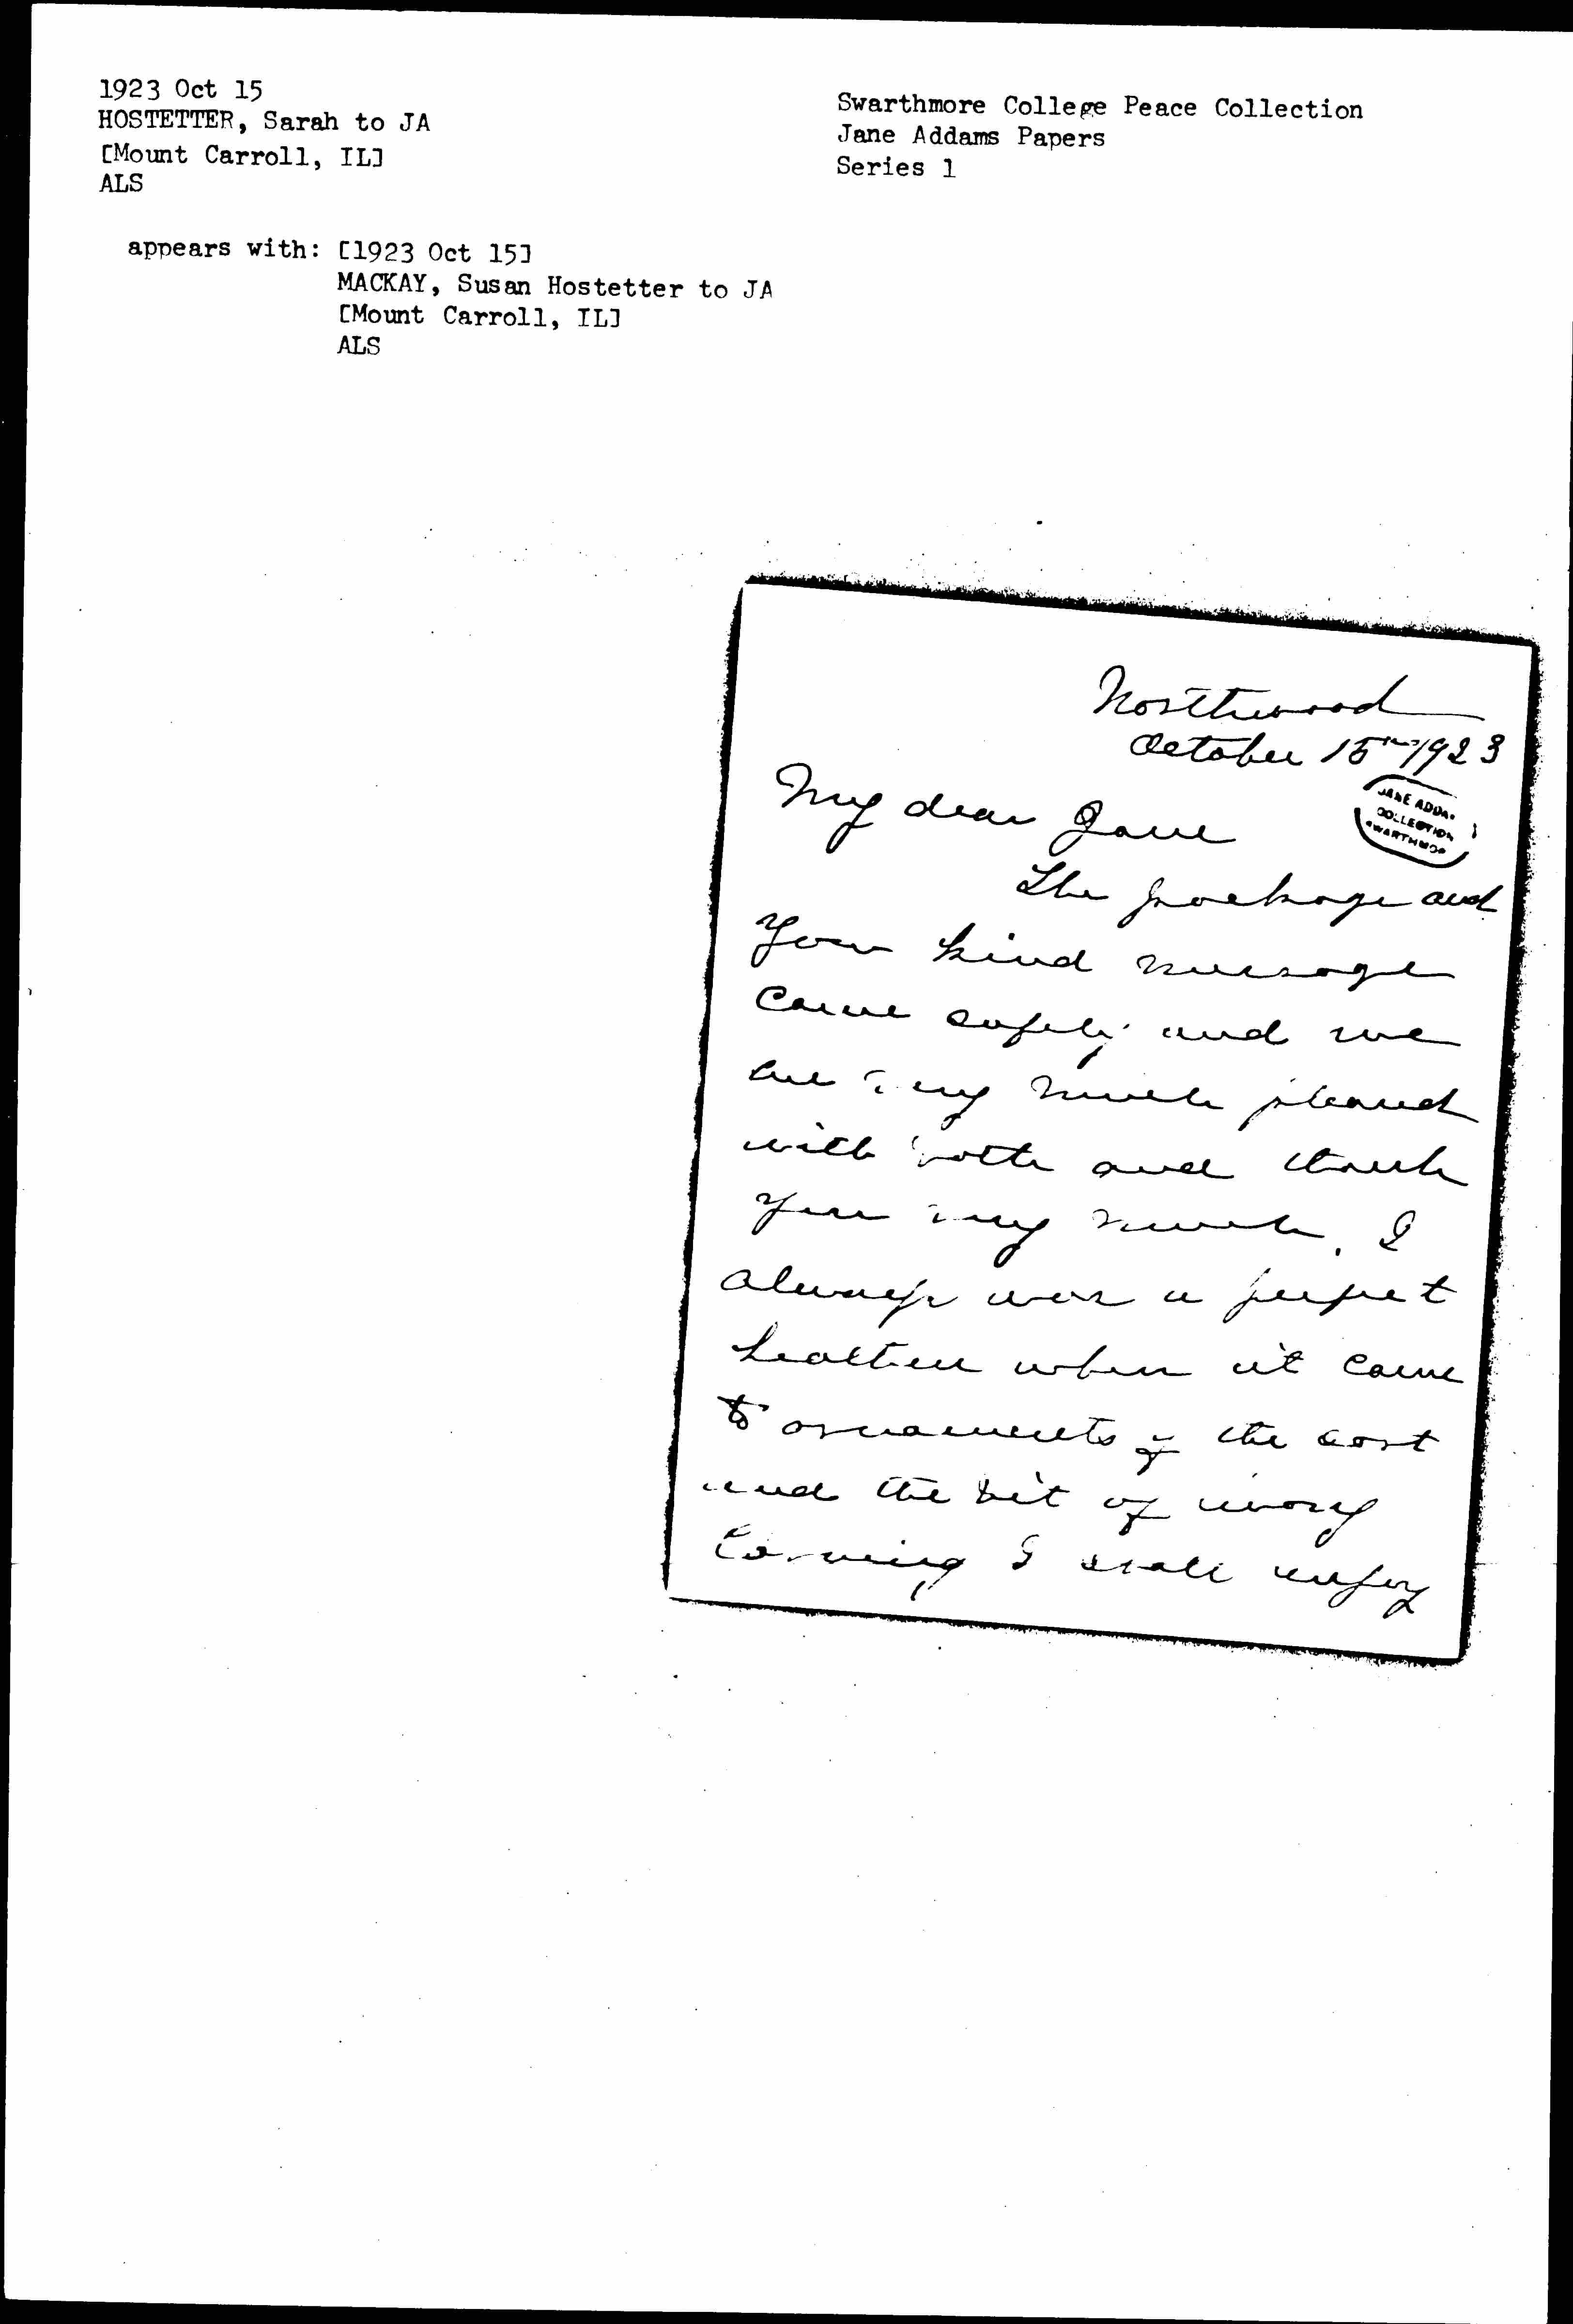 1923 Oct 15
HOSTETTER, Sarah to JA
[Mount Carroll, IL]
ALS
Swarthmore College Peace Collection
Jane Addams Papers
Series 1
appears with: [1923 Oct 15]
MACKAY, Susan Hostetter to JA
[Mount Carroll, IL]
ALS
Northwood
October 15th 1923
JANE ADDA
COLLECTION
SWARTHMO
My dear Jane
The package and
your kind message
came safely and we
are very much pleased
with both and thank
you very much. I
always was a perfect
heathen when it came
to ornaments of the sort
and the bit of ivory
carving I shall enjoy